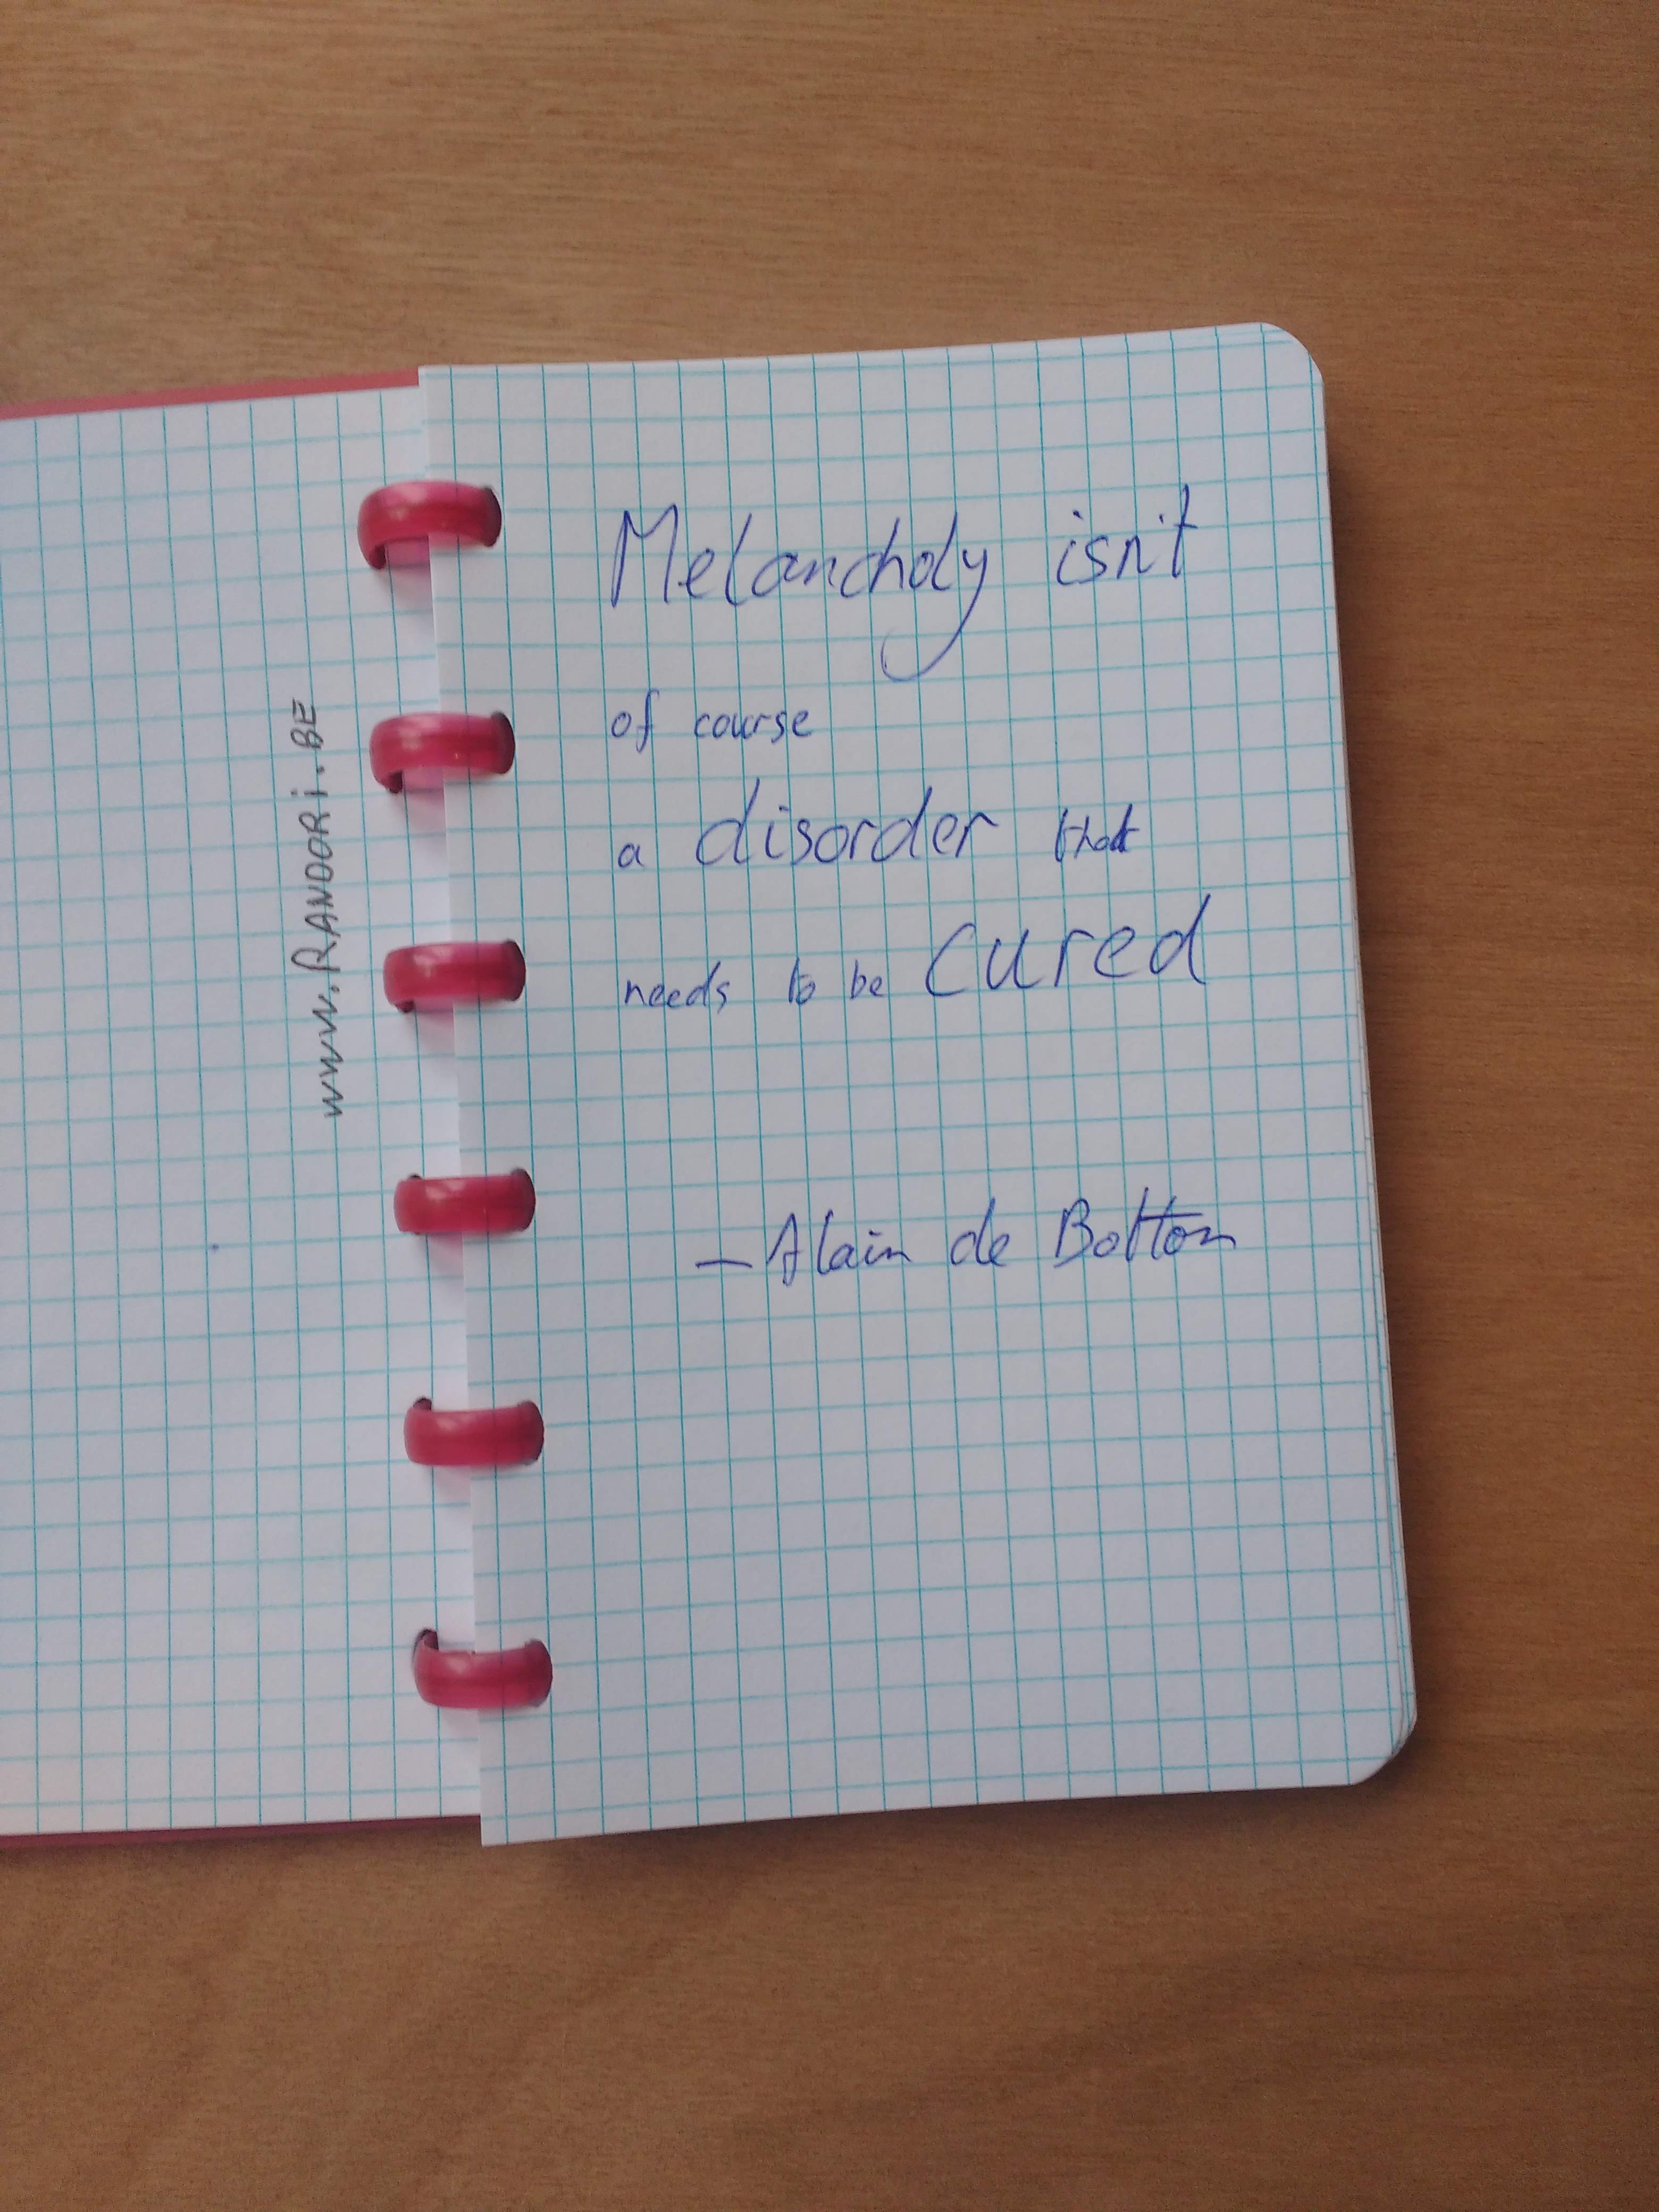 www.RANDORI.BE
Melancholy isn't
of course
a disorder that
needs to be cured
— Alain de Botton